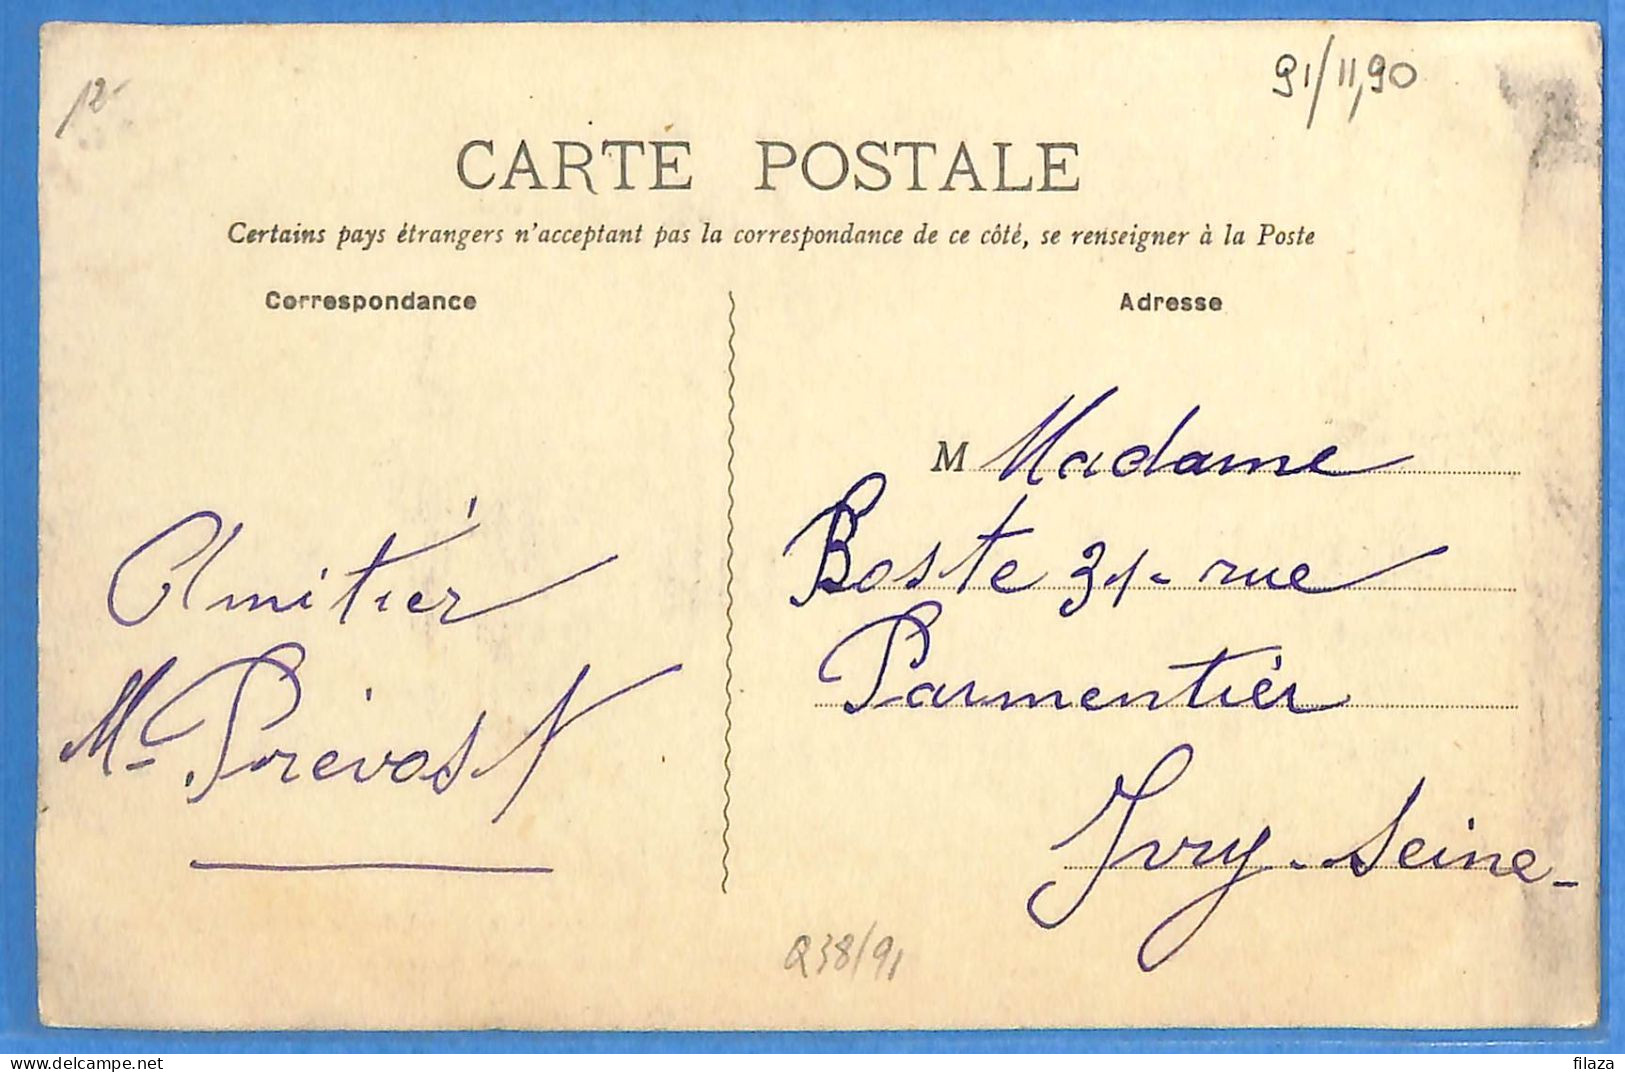 12-
91/11,90
CARTE POSTALE
Certains pays étrangers n'acceptant pas la correspondance de ce côté, se renseigner à la Poste
Correspondance
Adresse
Amitiér
Me Prévost
M Madame
Boste 31- rue
Parmentier
Ivry-Seine-
Q38/91
filaza